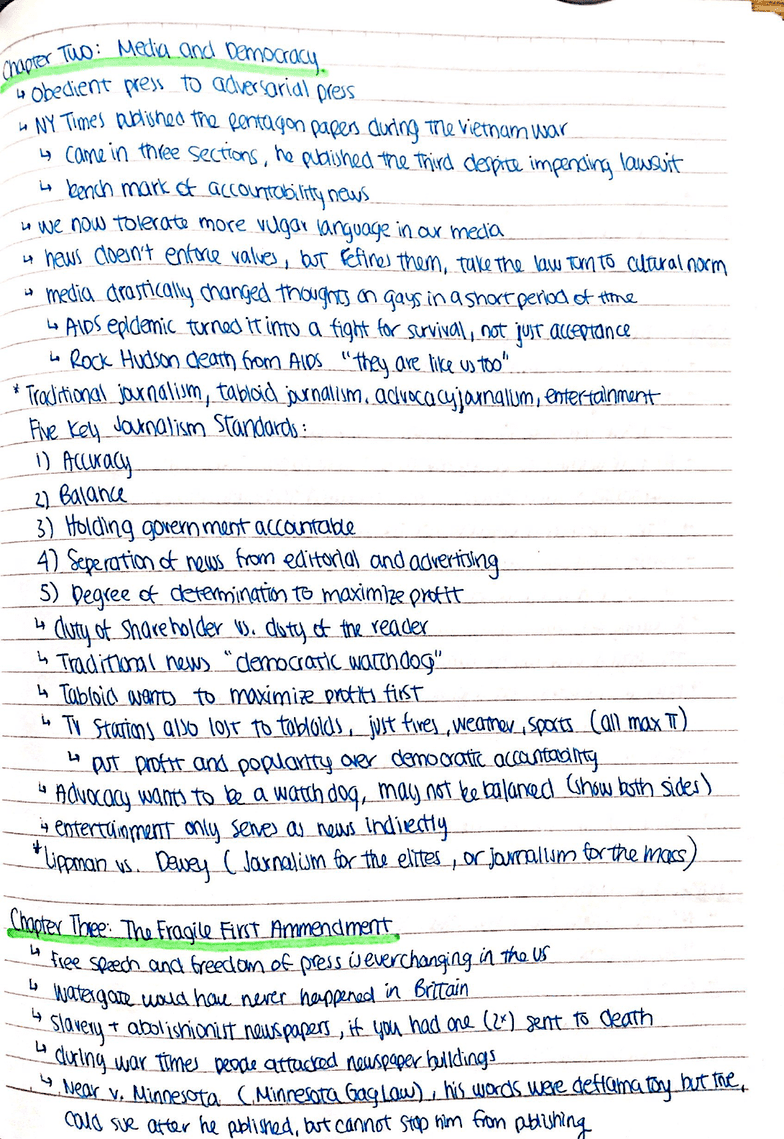 Chapter Two: Media and Democracy
↳ Obedient press to adversarial press
↳ NY Times published the pentagon papers during the Vietnam war
↳ Came in three sections, he published the third despite impending lawsuit
↳ bench mark of accountability news
↳ we now tolerate more vulgar language in our media
↳ news doesn't enforce values, but refines them, take the law turn to cultural norm
↳ media drastically changed thoughts on gays in a short period of time
↳ AIDS epidemic turned it into a fight for survival, not just acceptance
↳ Rock Hudson death from AIDS "they are like us too"
* Traditional journalism, tabloid journalism, advocacy journalism, entertainment
Five Key Journalism Standards:
1) Accuracy
2) Balance
3) Holding government accountable
4) Seperation of news from editorial and advertising
5) Degree of determination to maximize profit
↳ duty of shareholder vs. duty of the reader
↳ Traditional news "democratic watchdog"
↳ Tabloid wants to maximize profits first
↳ TV Stations also lost to tabloids, just fires, weather, sports (all max π)
↳ put profit and popularity over democratic accountability
↳ Advocacy wants to be a watch dog, may not be balanced (show both sides)
↳ entertainment only serves as news indirectly
* Lippman vs. Dewey (Journalism for the elites, or journalism for the mass)
Chapter Three: The Fragile First Ammendment
↳ free speech and freedom of press is everchanging in the US
↳ Watergate would have never happened in Brittain
↳ Slavery + abolishionist newspapers, if you had one (2x) sent to death
↳ during war times people attacked newspaper buildings
↳ Near v. Minnesota (Minnesota Gag Law), his words were deflamatory but true,
could sue after he published, but cannot stop him from publishing